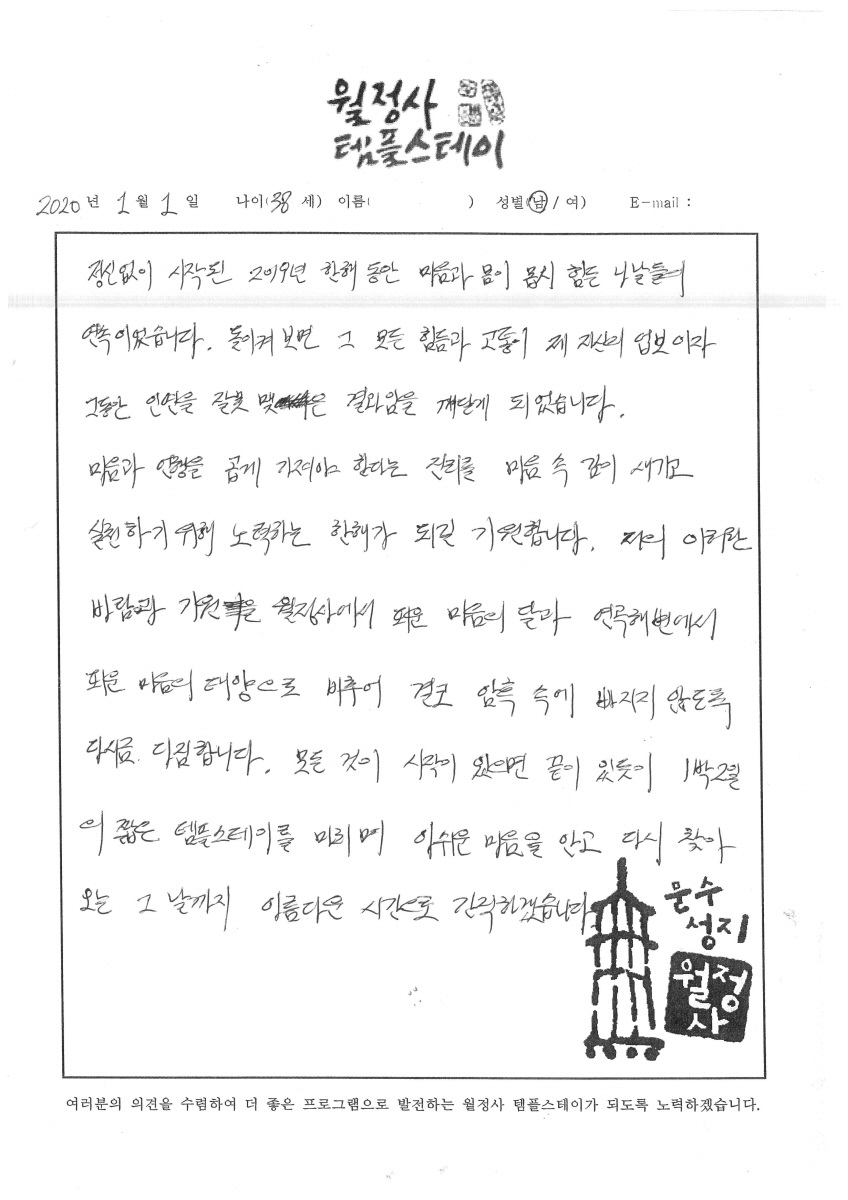 월정사
템플스테이
2020 년 1 월 1 일 나이(38 세) 이름( ) 성별(남/여) E-mail :
정신없이 시작된 2019년 한해 동안 마음과 몸이 몹시 힘든 나날들의
연속이었습니다. 돌이켜 보면 그 모든 힘듦과 고통이 제 자신의 업보이자
그동안 인연을 잘못 맺은 결과임을 깨닫게 되었습니다.
마음과 언행을 곱게 가져야 한다는 진리를 마음 속 깊이 새기고
실천하기 위해 노력하는 한해가 되길 기원합니다. 저의 이러한
바람과 기원을 월정사에서 띄운 마음의 달과 연곡해변에서
띄운 마음의 태양으로 비추어 결코 암흑 속에 빠지지 않도록
다시금 다짐합니다. 모든 것이 시작이 있으면 끝이 있듯이 1박2일
의 짧은 템플스테이를 마치며 아쉬운 마음을 안고 다시 찾아
오는 그 날까지 아름다운 시간으로 간직하겠습니다.
문수
성지
월정
사
여러분의 의견을 수렴하여 더 좋은 프로그램으로 발전하는 월정사 템플스테이가 되도록 노력하겠습니다.